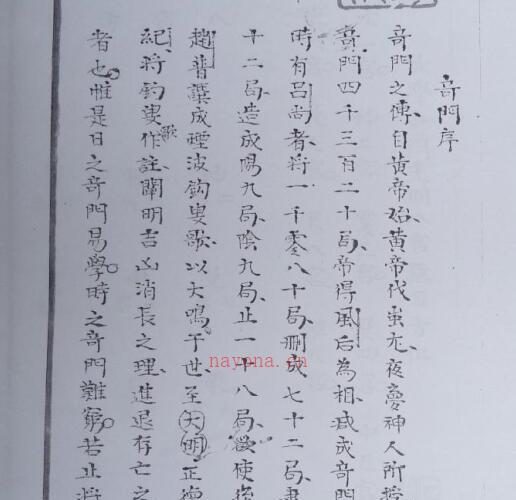 奇門序
奇門之傳自黃帝始黃帝代蚩尤夜夢神人所授
奇門四千三百二十局帝得風后為相減成奇門
時有呂尚者將一千零八十局刪成七十二局
十二局造成陽九局陰九局止一十八局欲使後
趙普譔成煙波鈎叟歌以大鳴于世至大明正德
紀將鈎叟歌作註闡明吉凶消長之理進退存亡之
者也惟是日之奇門易學時之奇門難窮若止將
nayona.cn